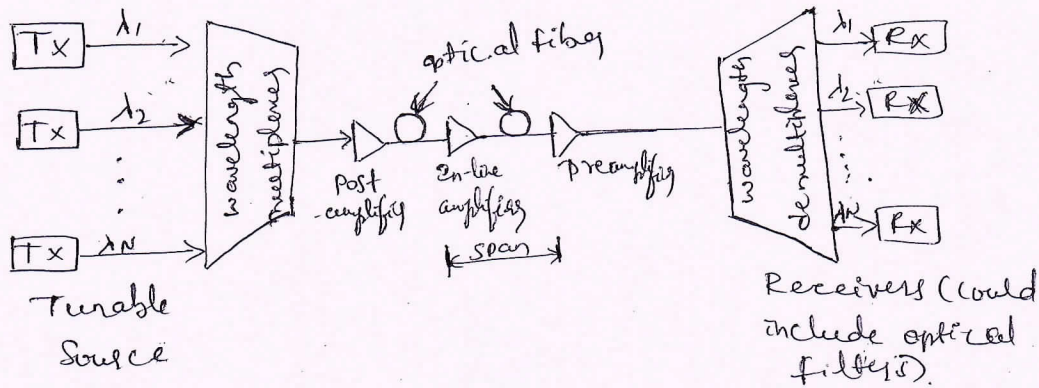 Tx
λ1
Tx
λ2
Tx
λN
Tunable
Source
wavelength
multiplexer
optical fiber
Post
-amplifier
In-line
amplifier
Preamplifier
span
wavelength
demultiplexer
λ1
Rx
λ2
Rx
λN
Rx
Receivers (Could
include optical
filters).